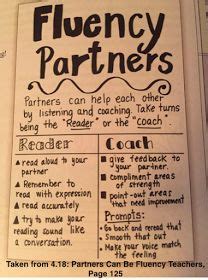 Fluency
Partners
Partners can help each other
by listening and coaching. Take turns
being the "Reader" or the "Coach".
Reader
▲ read aloud to your
partner
▲ Remember to
read with expression
▲ read accurately
▲ try to make your
reading sound like
a conversation.
Coach
■ give feedback to
your partner.
■ compliment areas
of strength
■ point-out areas
that need improvement
Prompts:
Go back and reread that
Smooth that out
Make your voice match
the feeling
Taken from 4.18: Partners Can Be Fluency Teachers,
Page 125